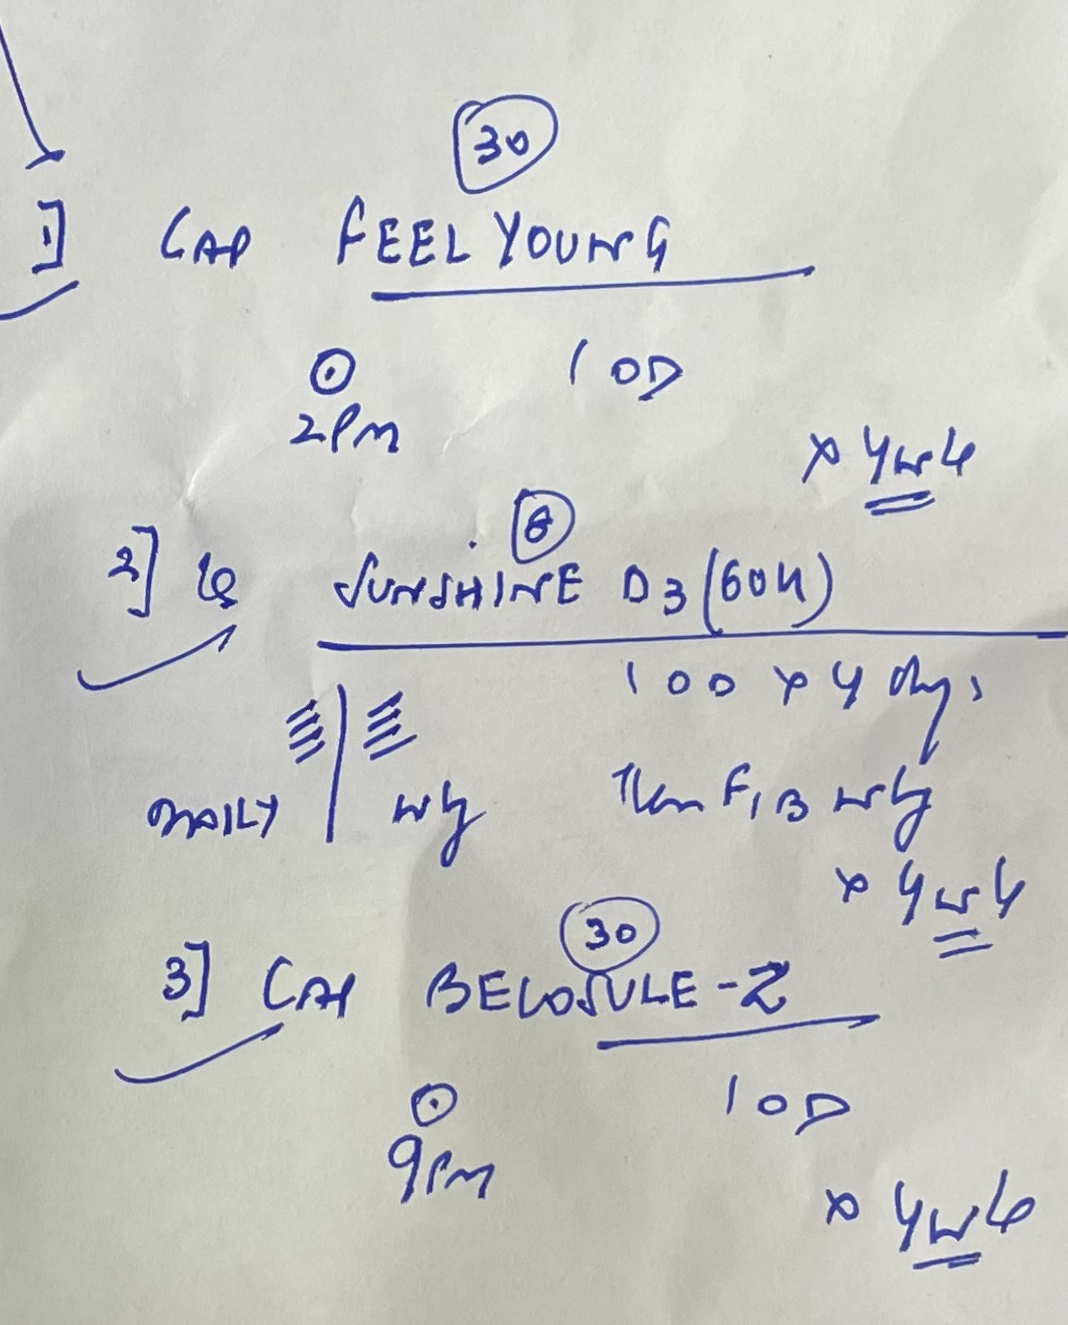 30
1] CAP FEEL YOUNG
1 OD
2PM
x 4wk
8
2] SUNSHINE D3 (60K)
1 OD x 4 days
DAILY | wly
Then F/B wkly
x 4wk
30
3] CAP BECOSULE-Z
1 OD
9PM
x 4wk